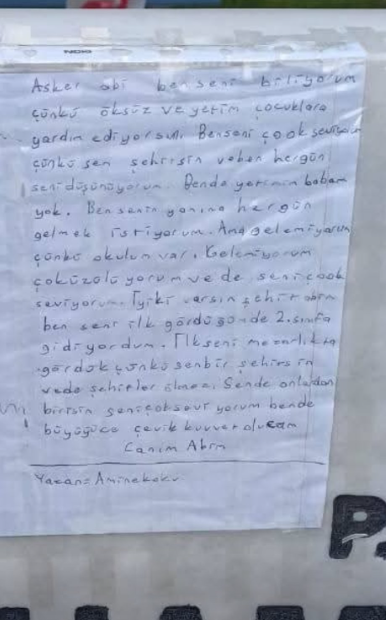 Asker abi ben seni biliyorum
çünkü öksüz ve yetim çocuklara
yardım ediyorsun. Ben seni çook seviyorum
çünkü sen şehirsin ve ben hergün
seni düşünüyorum. Bende yetimim babam
yok. Ben senin yanına hergün
gelmek istiyorum. Ama gelemiyorum
çünkü okulum var. Gelemiyorum
çok üzülüyorum ve de seni çook
seviyorum. İyiki varsın şehit abim
ben seni ilk gördüğümde 2. sınfa
gidiyordum. İlk seni mezarlıkta
gördük çünkü sen bir şehirsin
vede şehitler ölmez. Sende onlardan
birisin seni çok seviyorum bende
büyüğüce çevik kuvvet olucam
Canım Abim
Yazan:
P